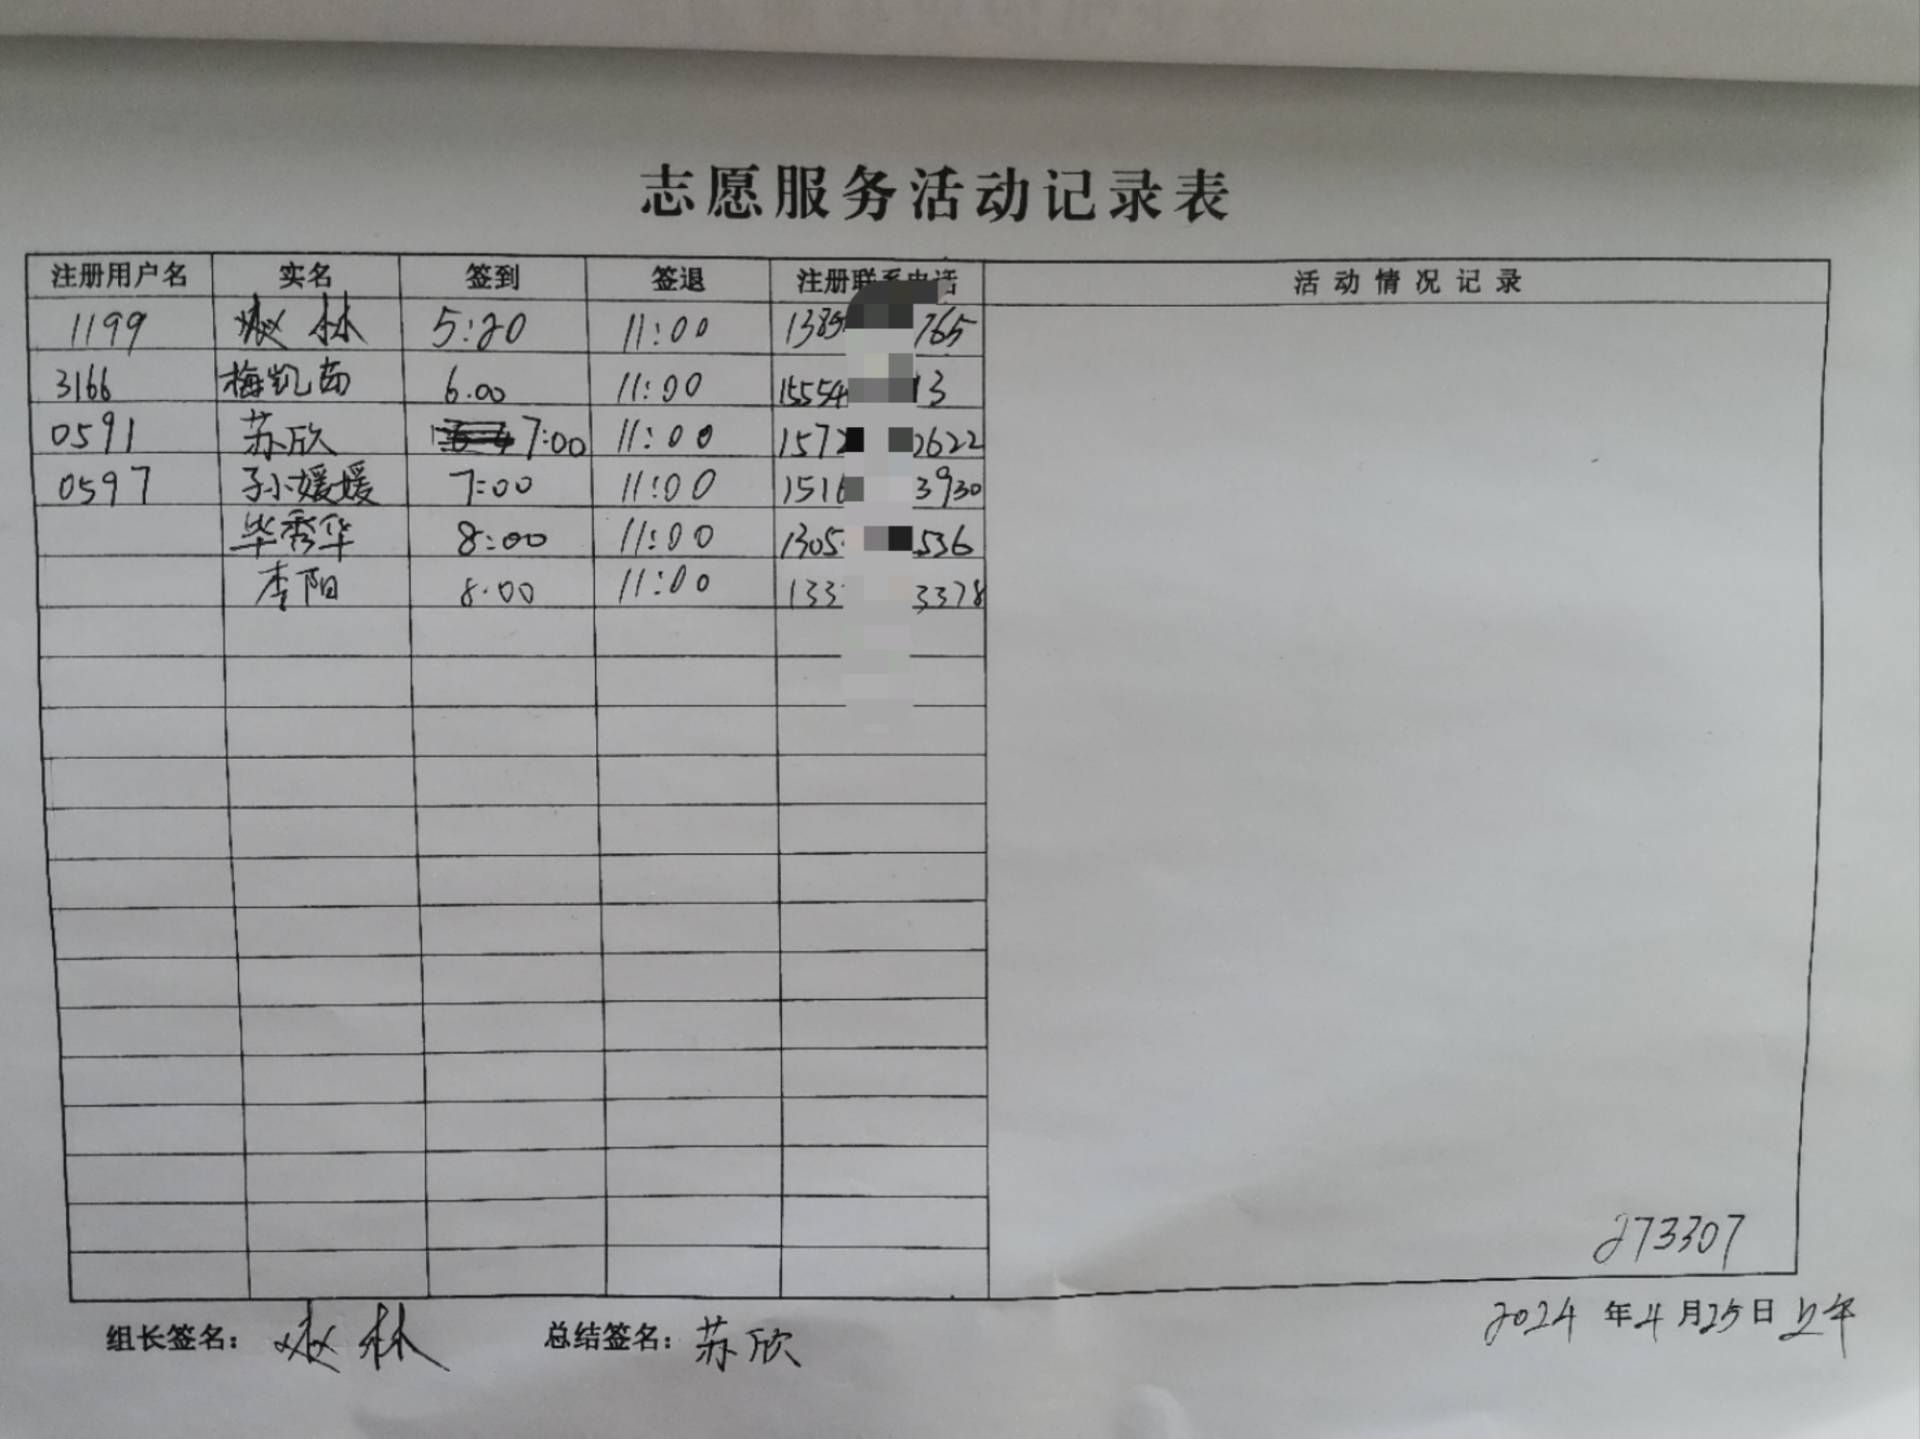 志愿服务活动记录表
注册用户名 实名 签到 签退 注册联系电话 活动情况记录
1199 林 5:20 11:00 1385 765
3166 梅凯茵 6.00 11:00 15554 13
0591 苏欣 7:00 11:00 1572 2622
0597 孙媛媛 7:00 11:00 151 3930
毕秀华 8:00 11:00 1305 536
李阳 8.00 11:00 133 3378
273307
组长签名: 林 总结签名: 苏欣 2024年4月25日上午